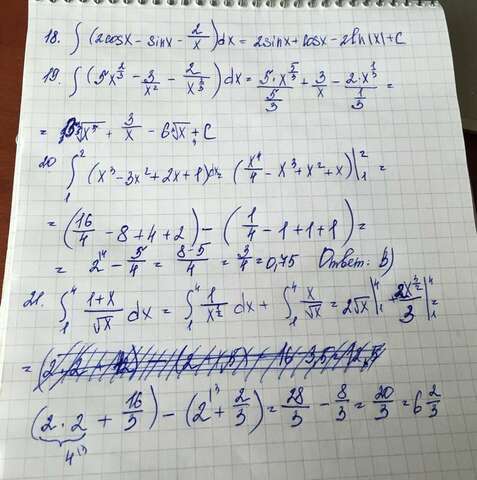 18. ∫ (2cosx - sinx - 2/x) dx = 2sinx + cosx - 2ln|x| + C
19. ∫ (5x^(2/3) - 3/x² - 2/x^(2/3)) dx = 5·x^(5/3)/(5/3) + 3/x - 2·x^(1/3)/(1/3) =
= 3∛x⁵ + 3/x - 6∛x + C
20 ∫₁² (x³ - 3x² + 2x + 1)dx = (x⁴/4 - x³ + x² + x)|₁² =
= (16/4 - 8 + 4 + 2) - (1/4 - 1 + 1 + 1) =
= 2 - 5/4 = 8-5/4 = 3/4 = 0,75 Ответ: B)
21. ∫₁⁴ (1+x)/√x dx = ∫₁⁴ 1/x^(1/2) dx + ∫₁⁴ x/√x = 2√x|₁⁴ + 2x^(3/2)/3|₁⁴ =
(2·2 + 16/3) - (2 + 2/3) = 28/3 - 8/3 = 20/3 = 6 2/3